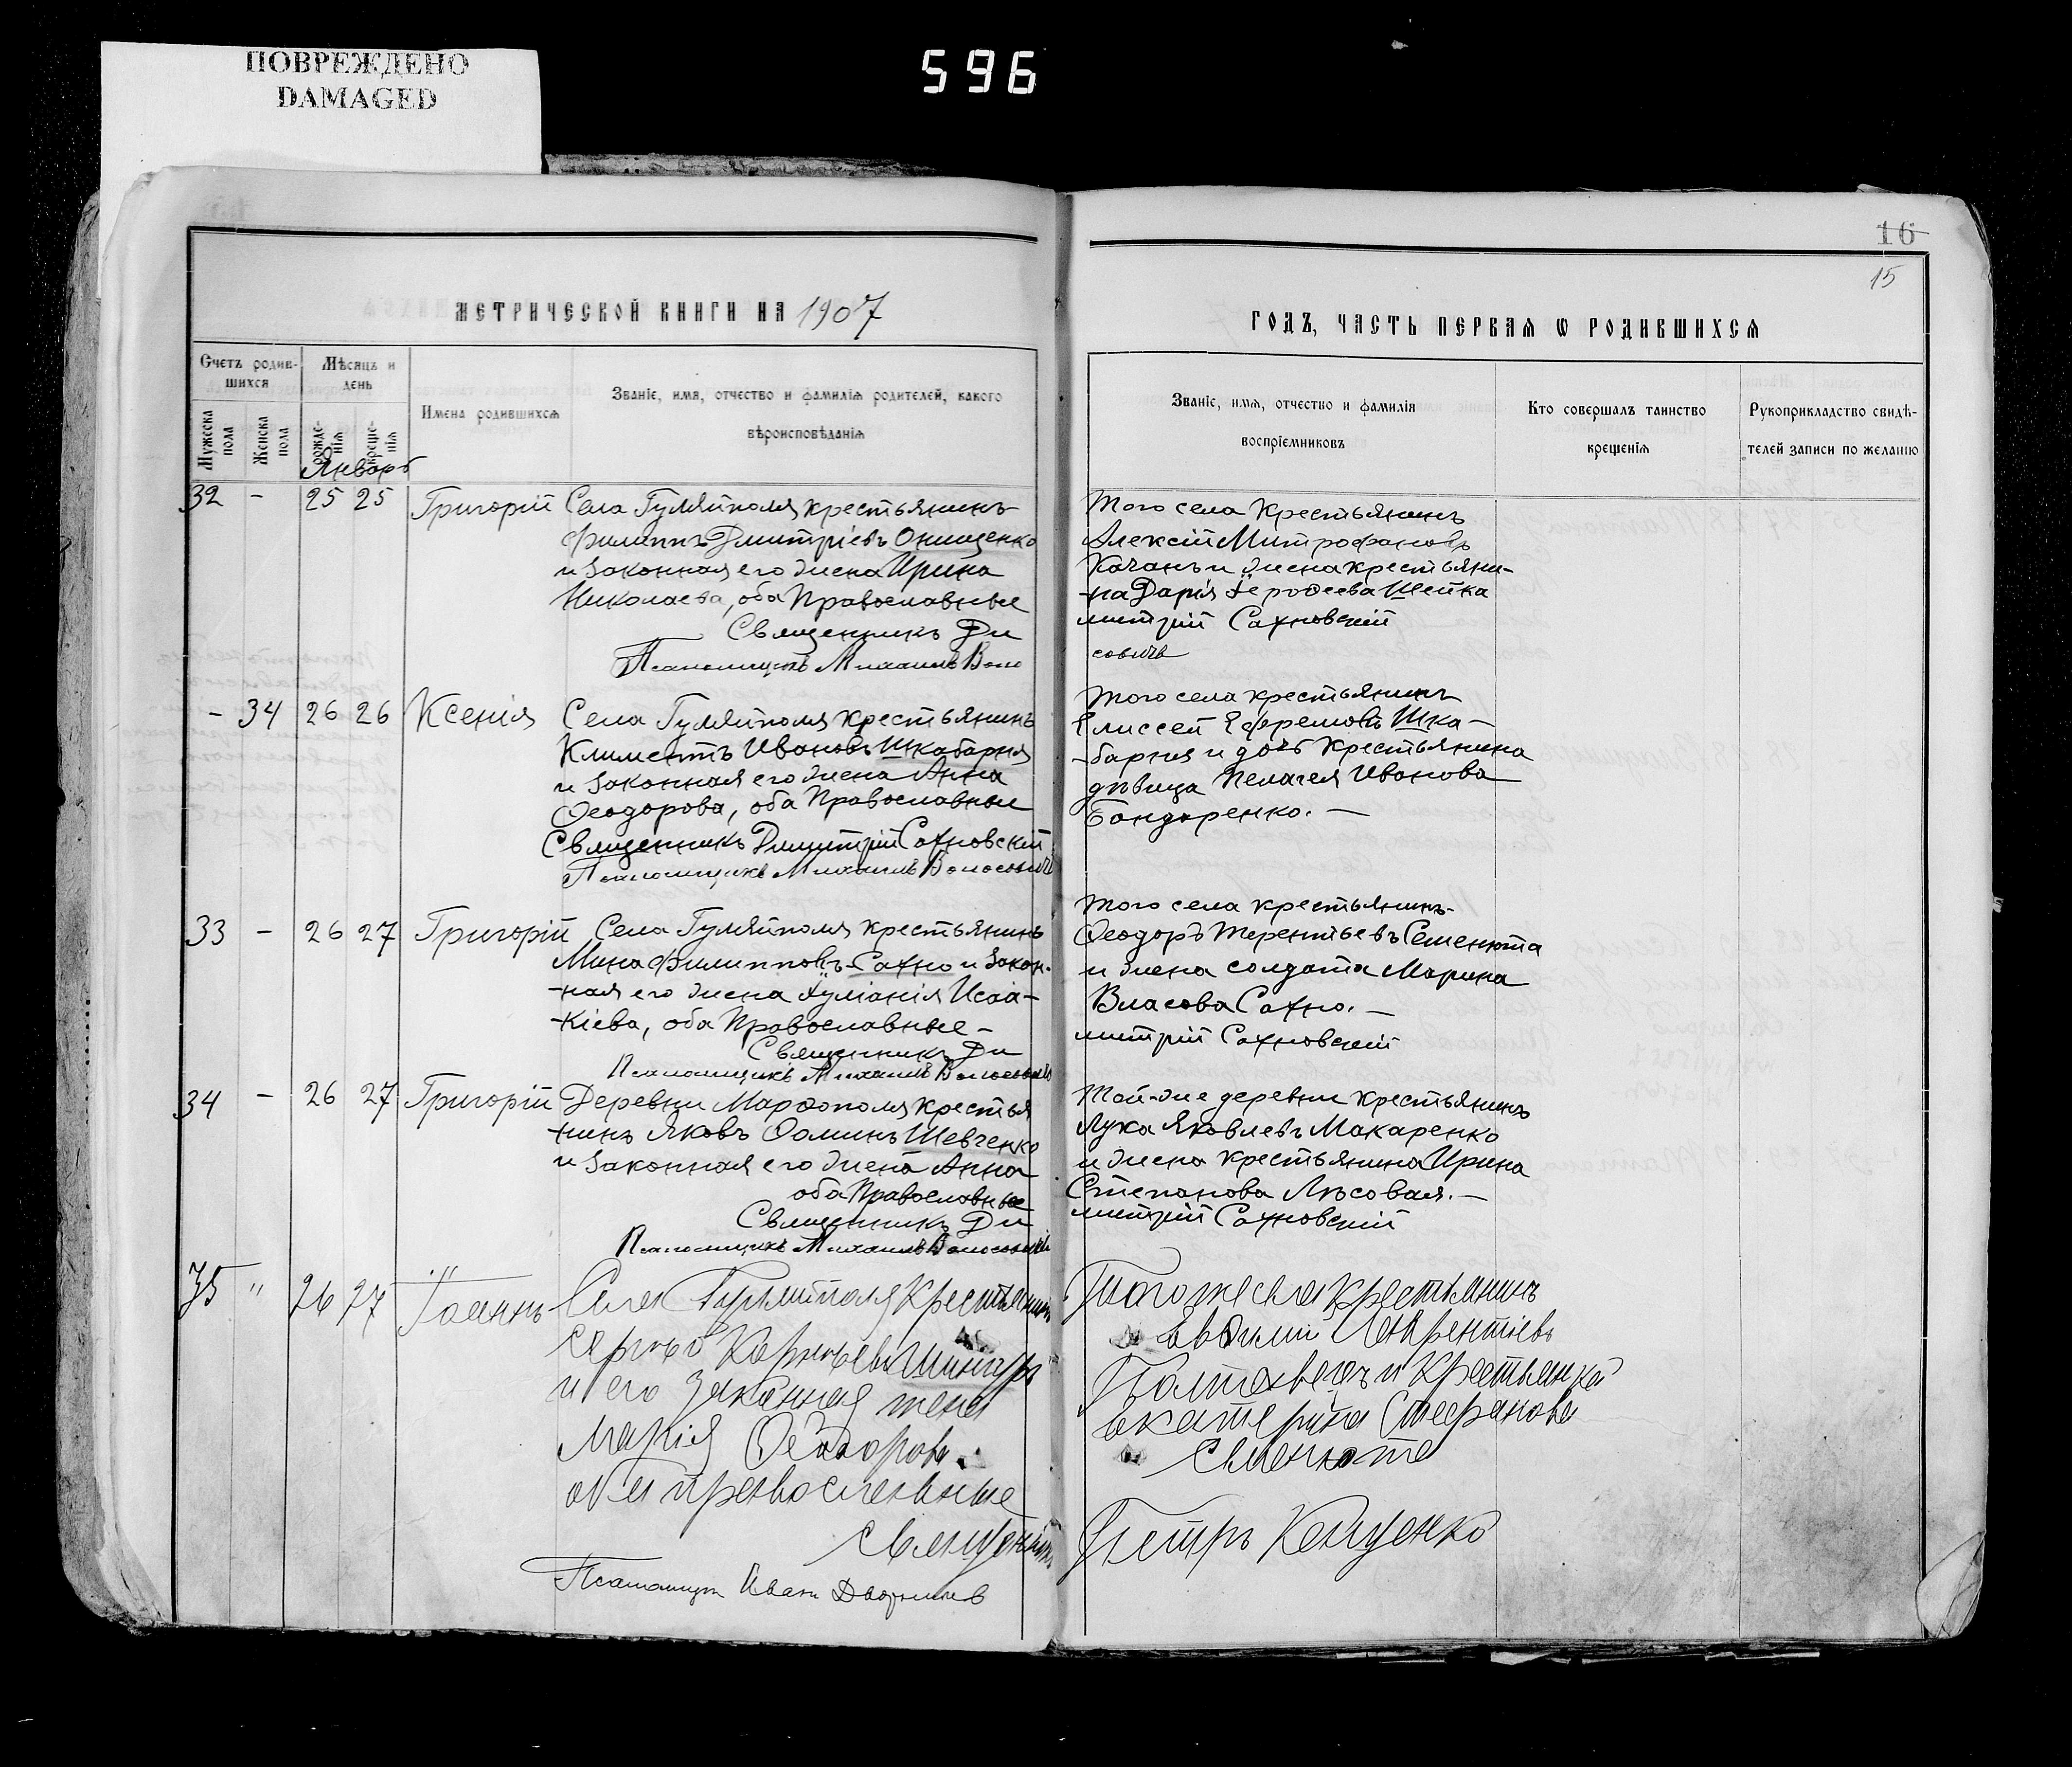 ПОВРЕЖДЕНО
DAMAGED
596
16
15
МЕТРИЧЕСКОЙ КНИГИ НА 1907
ГОДЪ, ЧАСТЬ ПЕРВАЯ Ѡ РОДИВШИХСЯ
Счетъ родив-
шихся
Мужеска пола
Женска пола
Мѣсяцъ и
день
рожде-
нія
креще-
нія
Имена родившихся
Званіе, имя, отчество и фамилія родителей, какого
вѣроисповѣданія
Званіе, имя, отчество и фамилія
воспріемниковъ
Кто совершалъ таинство
крещенія
Рукоприкладство свидѣ-
телей записи по желанію
Январь
32 - 25 25 Григорій Села Гуляйполя крестьянинъ
Филиппъ Дмитріевъ Онищенко
и законная его жена Ирина
Николаева, оба Православные
Священникъ Ди
Псаломщикъ Михаилъ Воло
Того села крестьянинъ
Алексій Митрофановъ
Качанъ и жена крестьяни-
-на Дарія Шепка
митрій Сахновскій
совичъ
- 34 26 26 Ксенія Села Гуляйполя крестьянинъ
Климентъ Ивановъ Шкабарня
и законная его жена Анна
Ѳеодорова, оба Православные
Священникъ Димитрій Сахновскій
Псаломщикъ Михаилъ Волосовичъ
Того села крестьянинъ
Елиссей Ефремовъ Шка-
-барня и дочь крестьянина
дѣвица Пелагея Иванова
Бондаренко. —
33 - 26 27 Григорій Села Гуляйполя крестьянинъ
Мина Филипповъ Сахно и закон-
-ная его жена Іуліанія Исаа-
-кіева, оба Православные -
Священникъ Ди
Псаломщикъ Михаилъ Волосовичъ
Того села крестьянинъ-
Ѳеодоръ Терентьевъ Семенюта
и жена солдата Марина
Власова Сахно. —
митрій Сахновскій
34 - 26 27 Григорій Деревни Марфополя крестья
-нинъ Яковъ Ѳоминъ Шевченко
и законная его жена Анна
оба Православные
Священникъ Ди
Псаломщикъ Михаилъ Волосовичъ
Той-же деревни крестьянинъ
Лука Яковлевъ Макаренко
и жена крестьянина Ирина
Степанова Лѣсовая. —
митрій Сахновскій
35 " 26 27 Іоаннъ Села Гуляйполя крестьянинъ
Сергѣй Корнѣевъ
и его законная жена
Марія Ѳеодорова
оба православные
Священникъ
Псаломщик Иван
Того же села крестьянинъ
Евдоким Лаврентіевъ
и крестьянка
Екатерина Стефанова
Семенюта
Петръ Кащенко